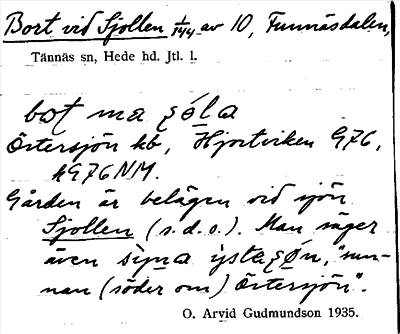 Bort vid Sjollen 1/144 av 10, Funnäsdalen,
Tännäs sn, Hede hd. Jtl. l.
bot ma
Östersjön kb, Hjortviken G76,
AG76NM.
Gården är belägen vid sjön
Sjollen (s.d.o.). Man säger
även "sun-
nan (söder om) Östersjön".
O. Arvid Gudmundson 1935.